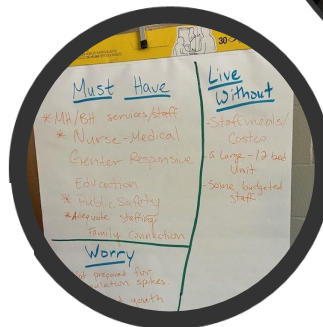 30
Must Have
* MH/BH services/staff
* Nurse-Medical
Gender Responsive
Education
* Public Safety
* Adequate staffing
Family Connection
Worry
prepared for
spikes.
youth
Live
Without
-
- a large - 12 bed
Unit
- Some budgeted
staff